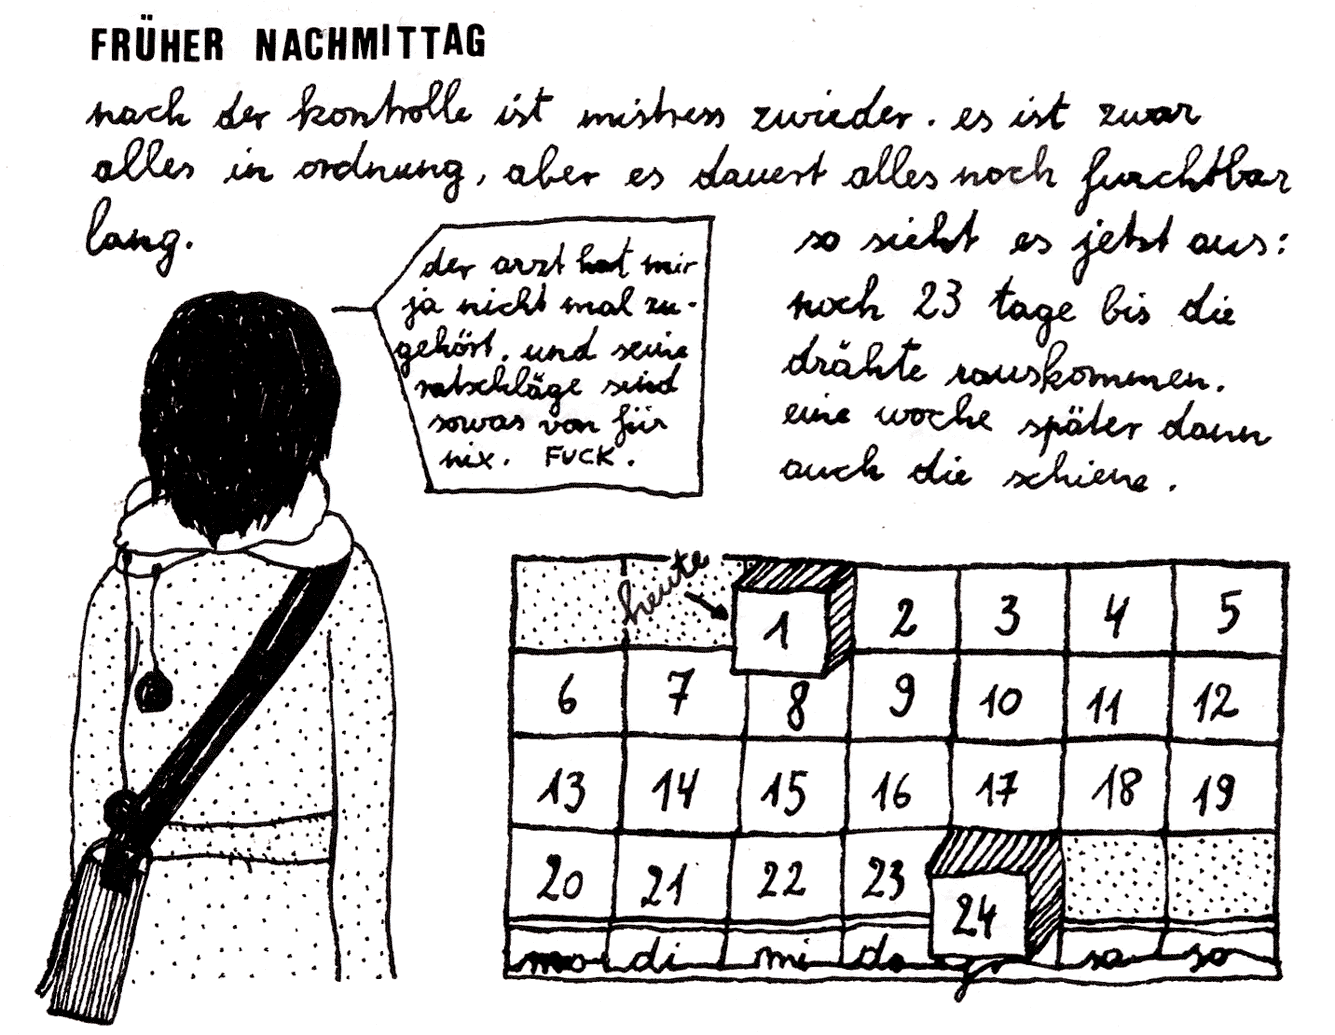 FRÜHER NACHMITTAG
nach der kontrolle ist mistress zwieder. es ist zwar
alles in ordnung, aber es dauert alles noch furchtbar
lang.
der arzt hat mir
ja nicht mal zu-
gehört. und seine
ratschläge sind
sowas von für
nix. FUCK.
so sieht es jetzt aus:
noch 23 tage bis die
drähte rauskommen.
eine woche später dann
auch die schiene.
heute
1 2 3 4 5
6 7 8 9 10 11 12
13 14 15 16 17 18 19
20 21 22 23 24
mo di mi do fr sa so